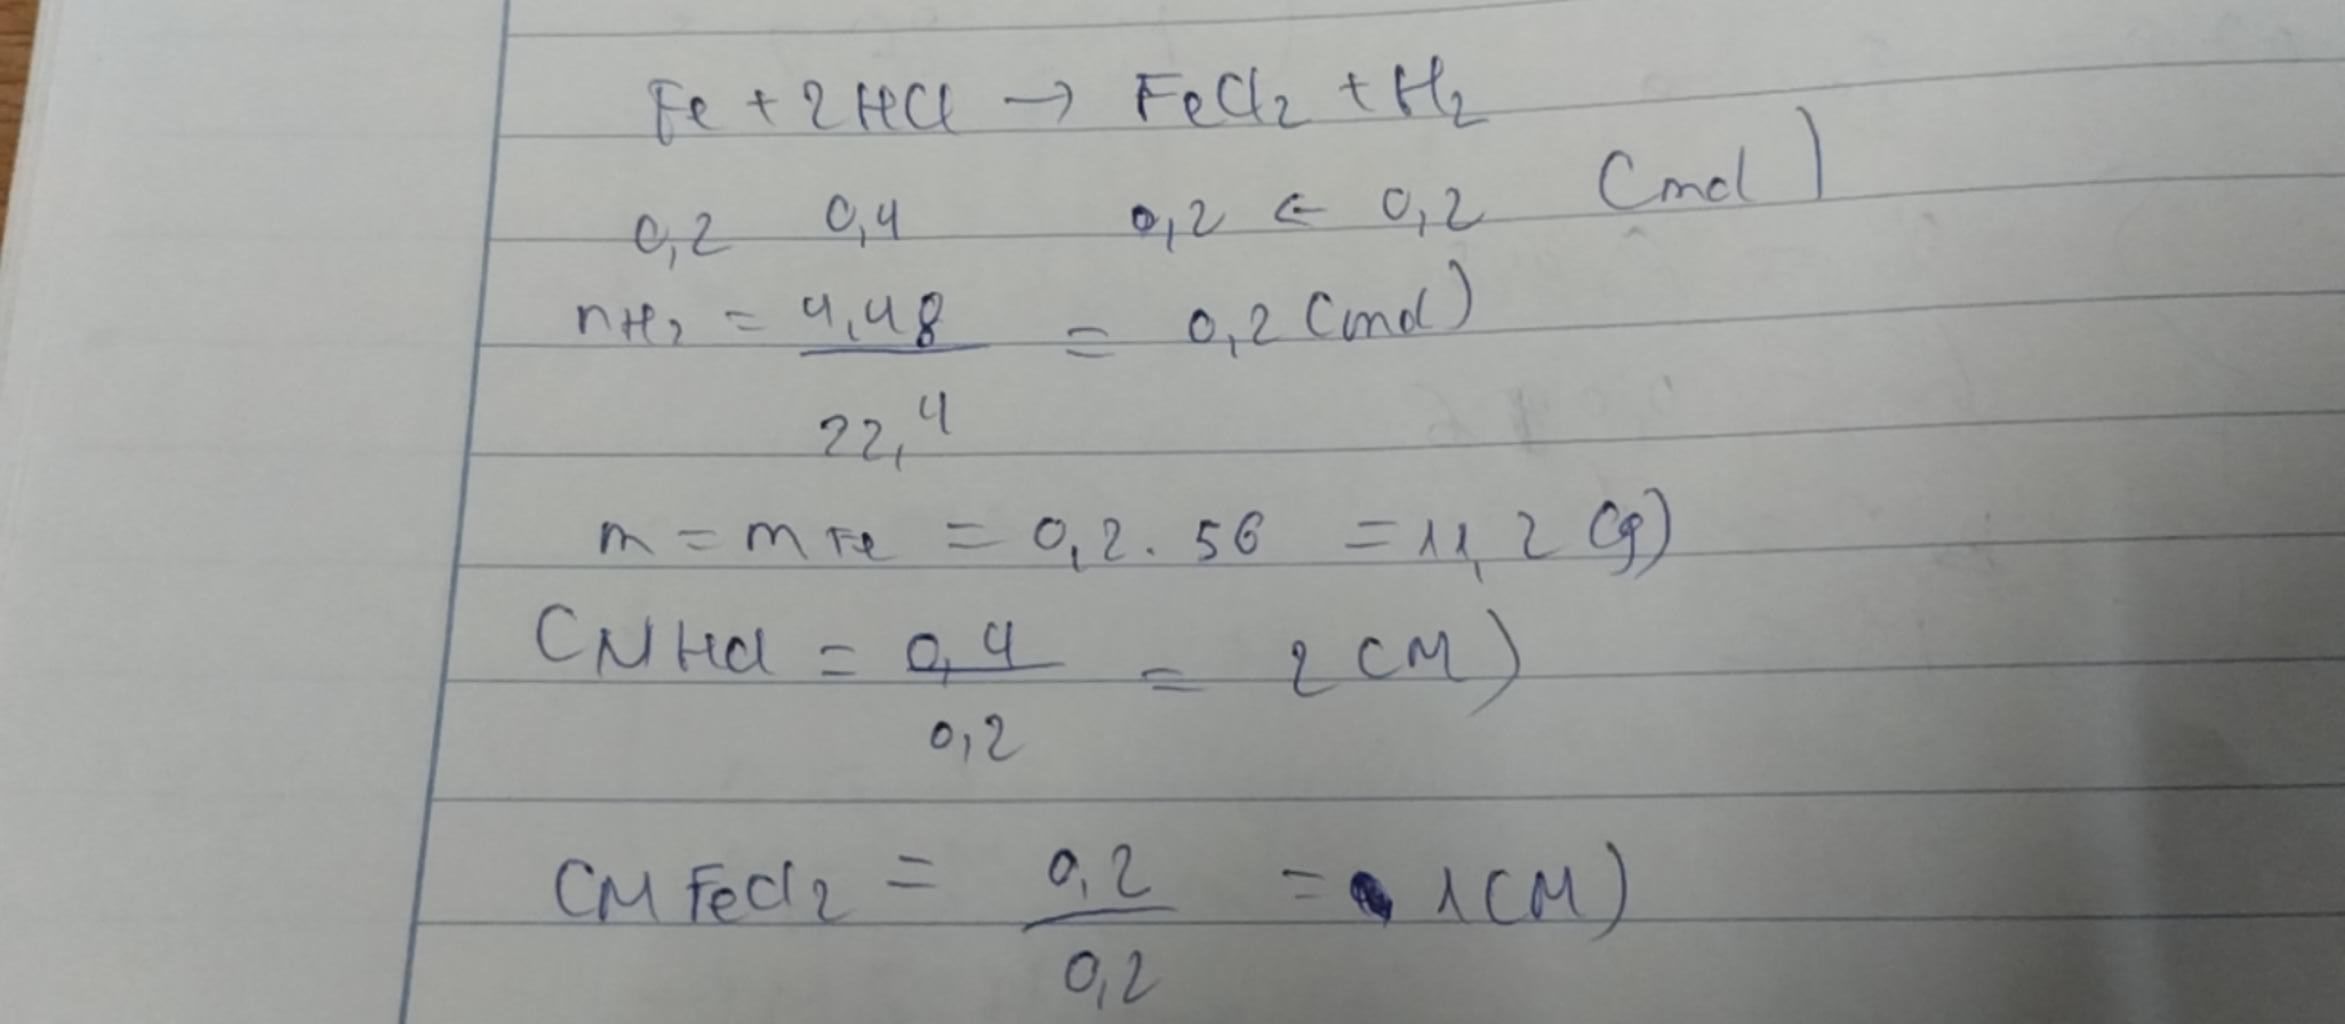 Fe + 2HCl → FeCl₂ + H₂
0,2 0,4 0,2 ← 0,2 (mol)
nH₂ = 4,48 = 0,2 (mol)
22,4
m = mFe = 0,2 . 56 = 11,2 (g)
CMHCl = 0,4 = 2 (M)
0,2
CMFeCl₂ = 0,2 = 1 (M)
0,2